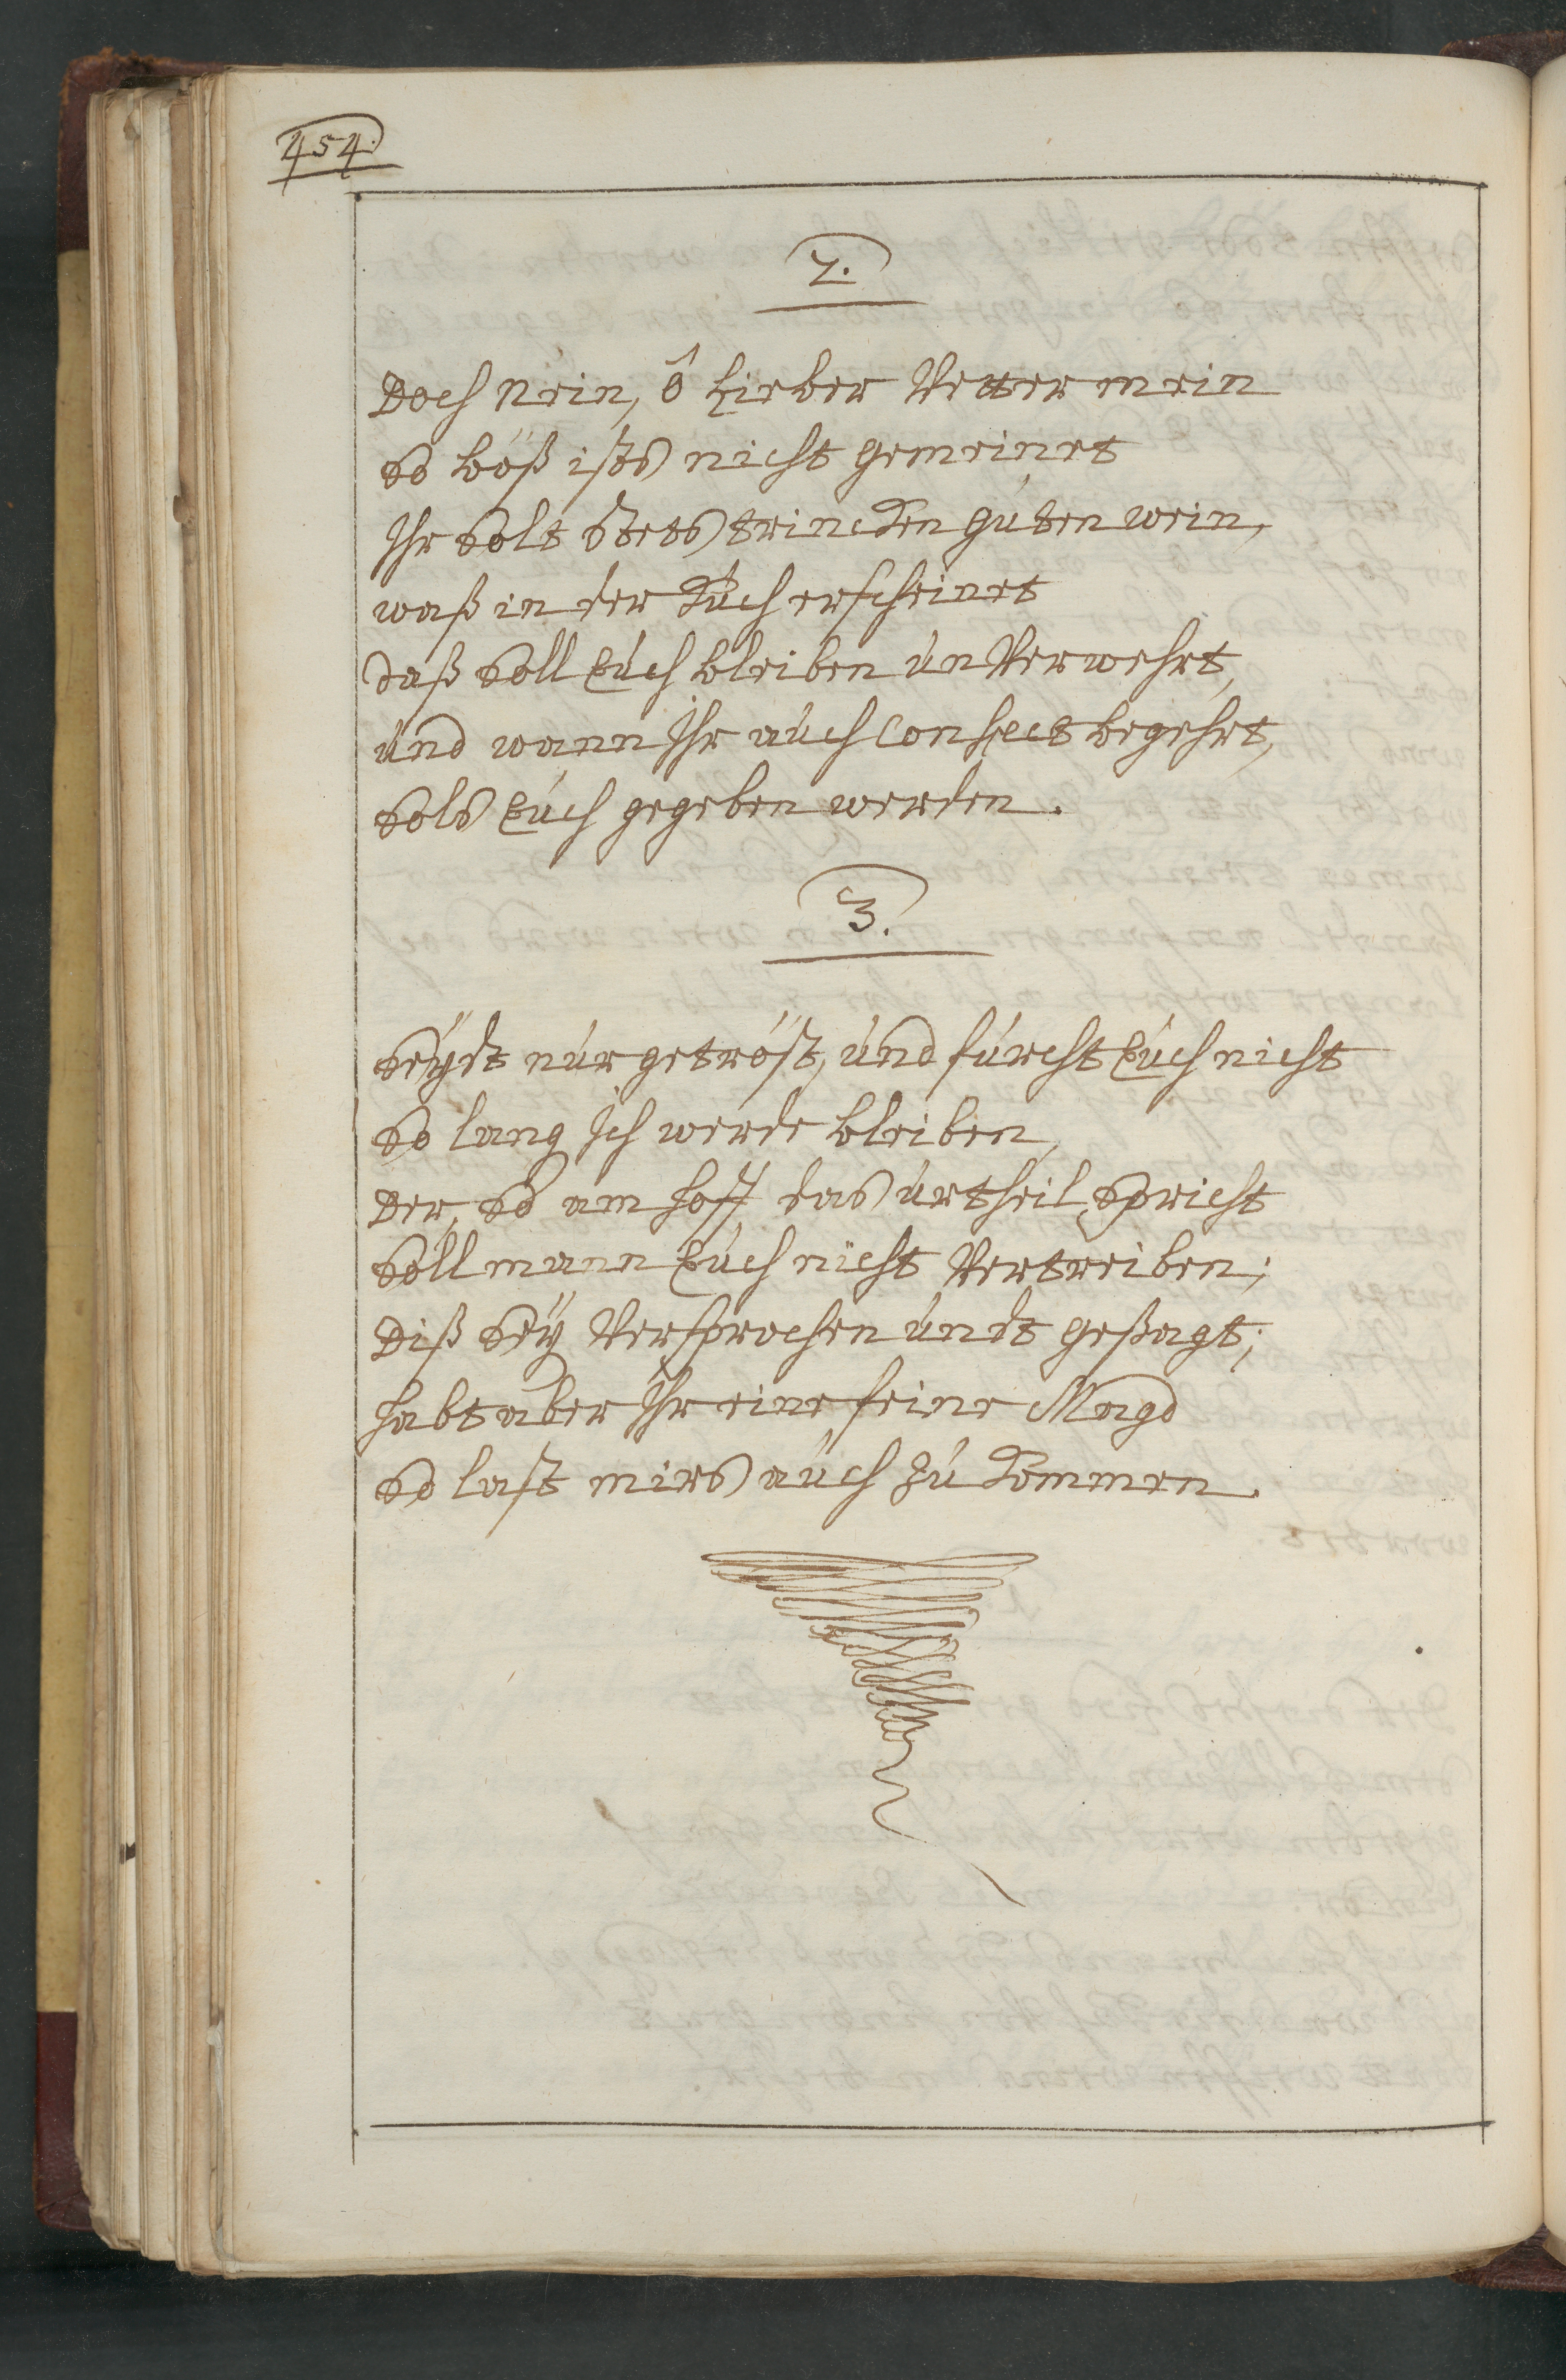 454.
2.
Doch Nein, ô Lieber Vetter mein
So böß ists nicht gemeinet
Ihr Solt Stets trincken guten wein,
waß in der Kuch erscheinet
daß Soll Euch bleiben unVerwehrt,
und wann Ihr auch Confect begehrt,
Sols Euch gegeben werden.
3.
Seÿdt nur getröst, und fürcht Euch nicht
So lang Ich werde bleiben,
Der, So am hoff das urtheil Spricht
Soll mann Euch nicht Vertreiben;
Diß Seÿ Versprochen undt geßagt;
habt aber Ihr eine feine Magd
So last mirs auch zu kommen.